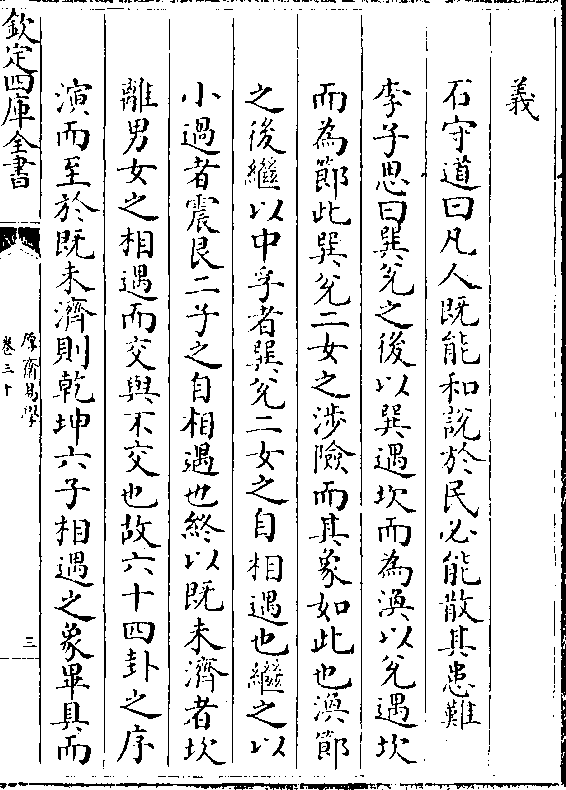 義
石守道曰凡人既能和說於民必能散其患難
李子思曰巽兊之後以巽遇坎而為渙以兊遇坎
而為節此巽兊二女之涉險而其象如此也渙節
之後繼以中孚者巽兊二女之自相遇也繼之以
小過者震艮二子之自相遇也終以既未濟者坎
離男女之相遇而交與不交也故六十四卦之序
演而至於既未濟則乾坤六子相遇之象畢具而
欽定四庫全書
厚齋易學
卷三十
三